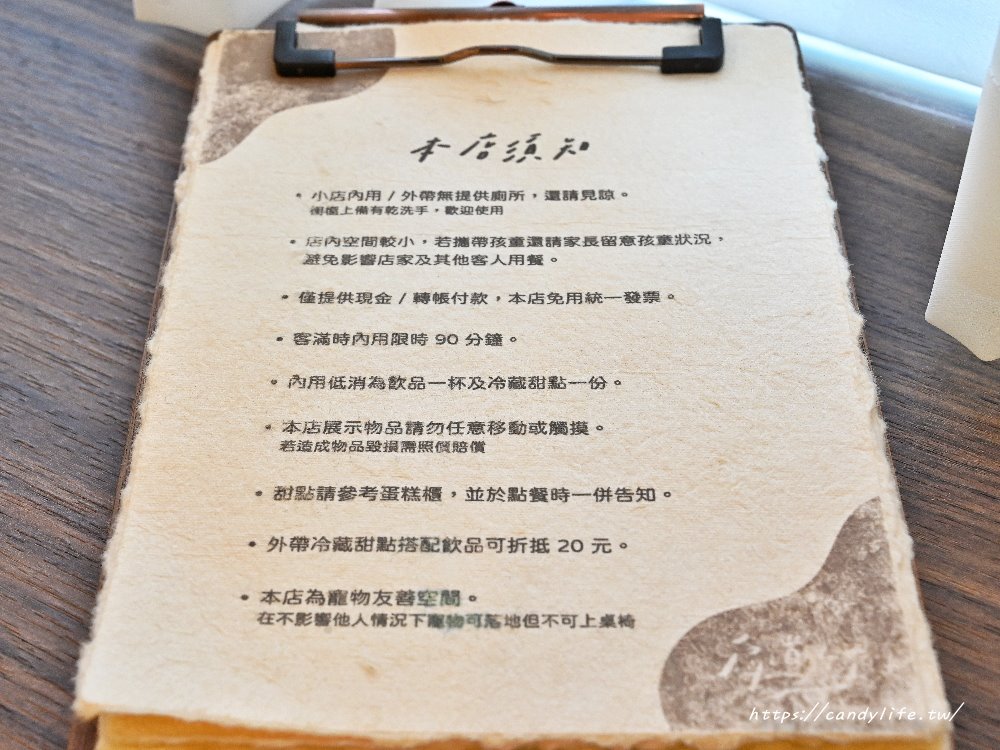 本店須知
• 小店內用 / 外帶無提供廁所，還請見諒。
櫃上備有乾洗手，歡迎使用
• 店內空間較小，若攜帶孩童還請家長留意孩童狀況，
避免影響店家及其他客人用餐。
• 僅提供現金 / 轉帳付款，本店免用統一發票。
• 客滿時內用限時 90 分鐘。
• 內用低消為飲品一杯及冷藏甜點一份。
• 本店展示物品請勿任意移動或觸摸。
若造成物品毀損需照價賠償
• 甜點請參考蛋糕櫃，並於點餐時一併告知。
• 外帶冷藏甜點搭配飲品可折抵 20 元。
• 本店為寵物友善空間。
在不影響他人情況下寵物可落地但不可上桌椅
https://candylife.tw/